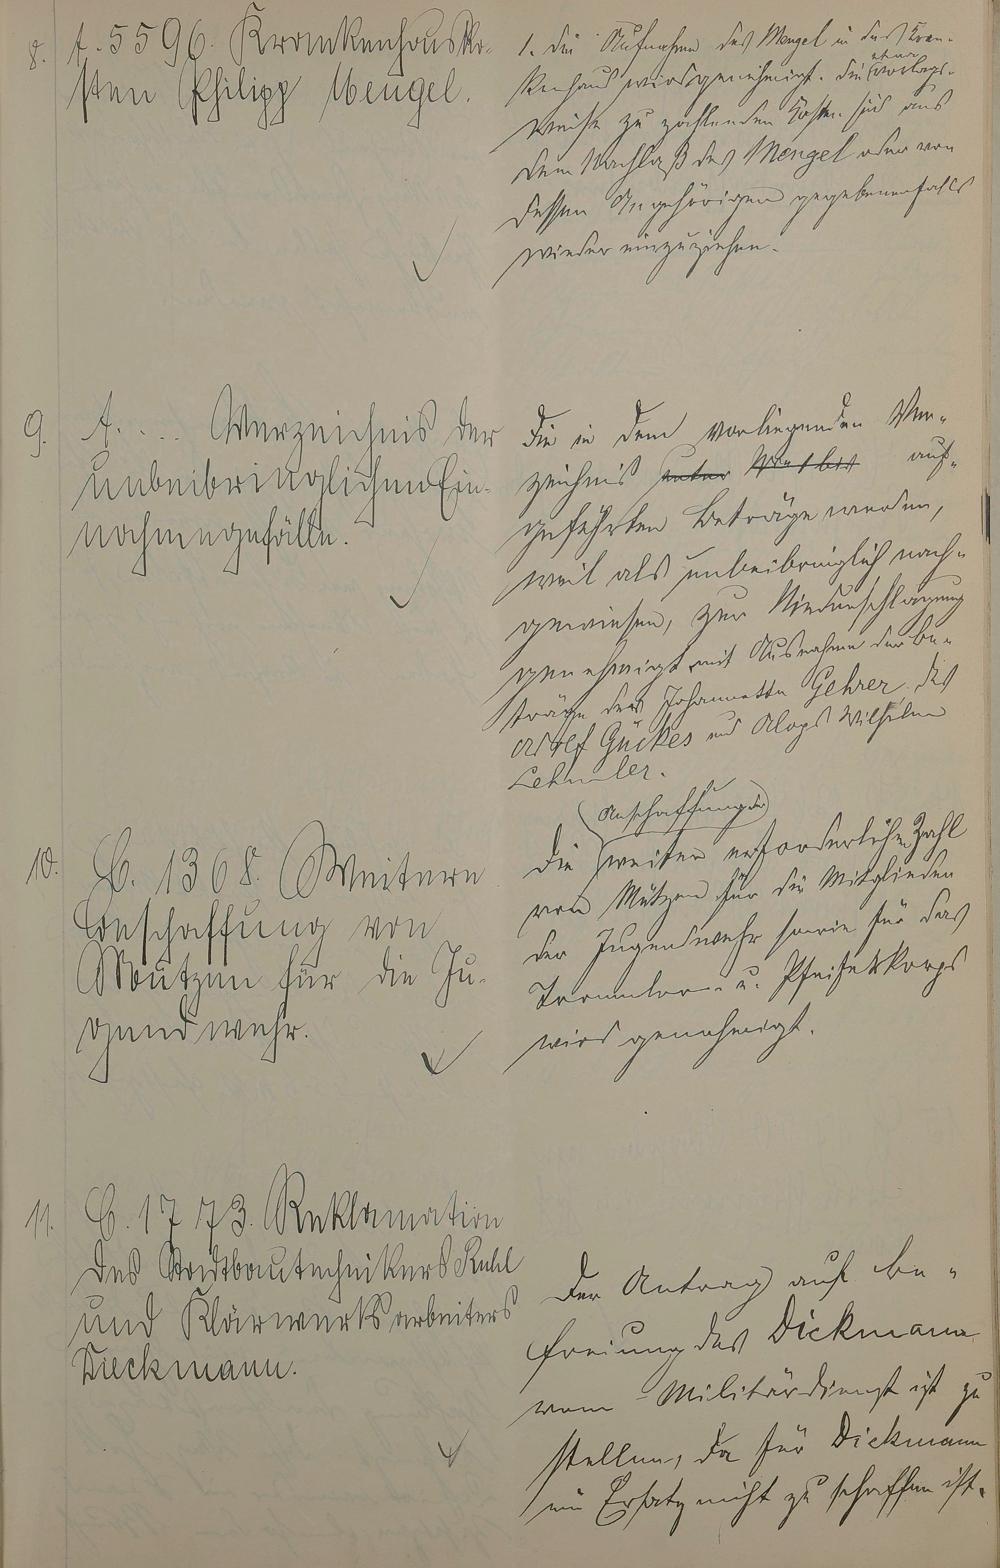 8. A. 5596. Krankenhausko-
sten Philipp Mengel.
1. Die Aufnahme des Mengel in das Kran-
kenhaus wird genehmigt. Die etwa vorschuss-
weise zu zahlenden Kosten sind aus
dem Nachlaß des Mengel oder von
dessen Angehörigen gegebenenfalls
wieder einzuziehen.
9. A. .... Verzeichnis der
unbeibringlichen Ein-
nahmegefälle.
Die in dem vorliegenden Ver-
zeichnis unter auf-
geführten Beträge werden,
weil als unbeibringlich nach-
gewiesen, zur Niederschlagung
genehmigt mit Ausnahme der Be-
träge der Johannette Gehrer, des
Adolf Gückes und Aloys Wilhelm
Lehmler.
10. B. 1368. Weitere
Beschaffung von
Mützen für die Ju-
gendwehr.
Anschaffung der
Die weiter erforderlichen Zahl
von Mützen für die Mitglieder
der Jugendwehr sowie für das
Trommler- u. Pfeiferkorps
wird genehmigt.
11. B. 1773. Reklamation
des Stadtbautechnikers Ruhl
und Klärwerksarbeiters
Dieckmann.
Der Antrag auf Be-
freiung des Dickmann
vom Militärdienst ist zu
stellen, da für Dickmann
ein Ersatz nicht zu schaffen ist.